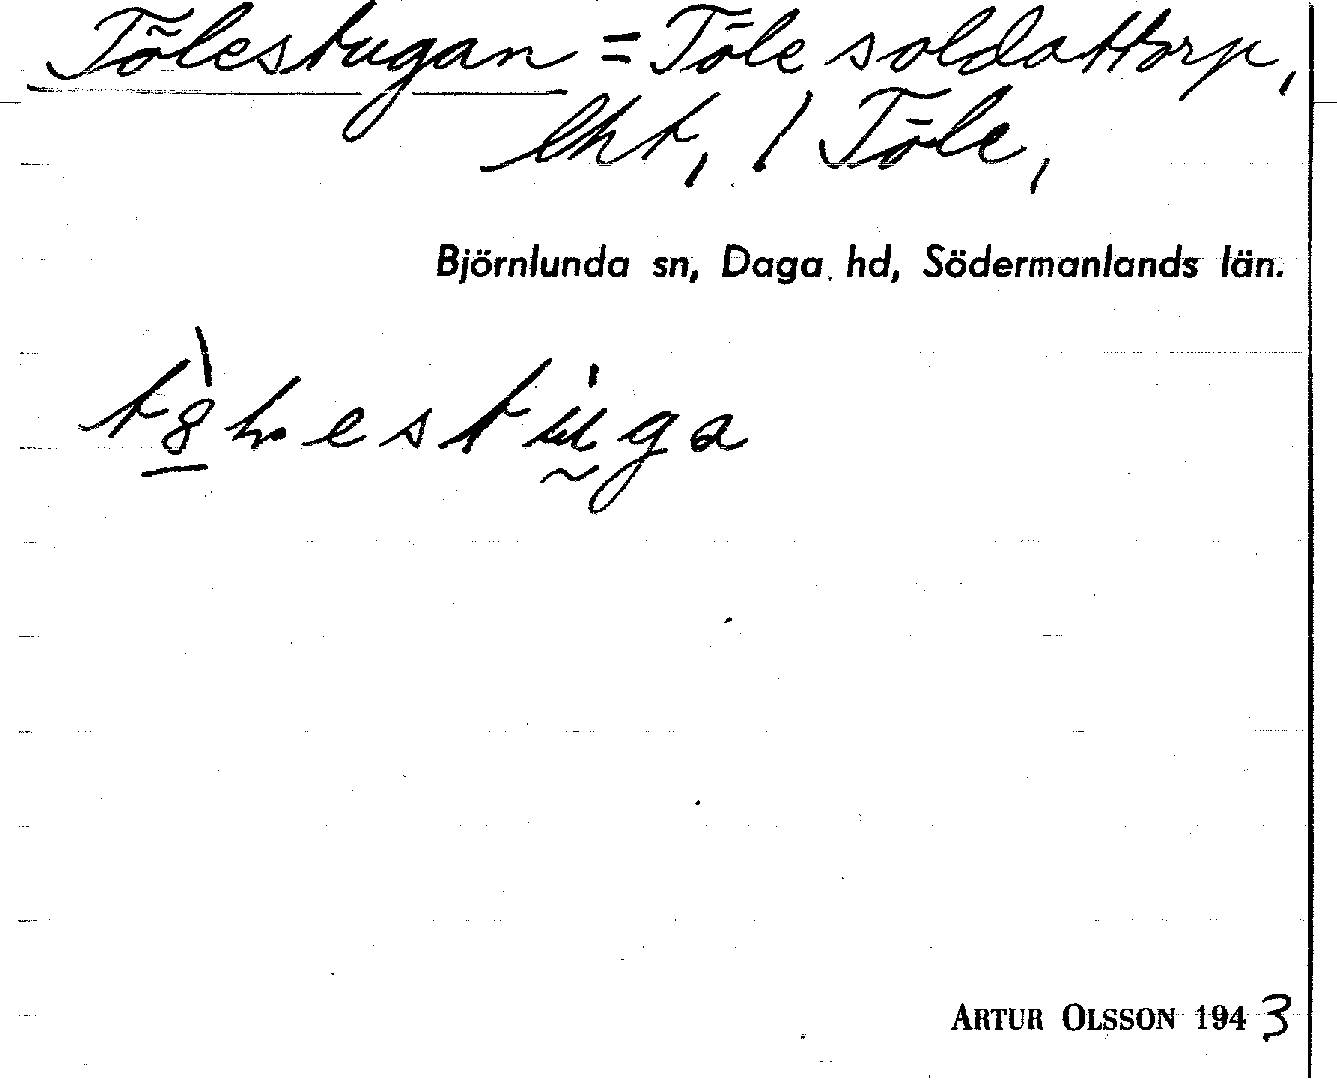 Tölestugan = Töle soldattorp,
lht, / Töle,
Björnlunda sn, Daga hd, Södermanlands län.
ARTUR OLSSON 1943